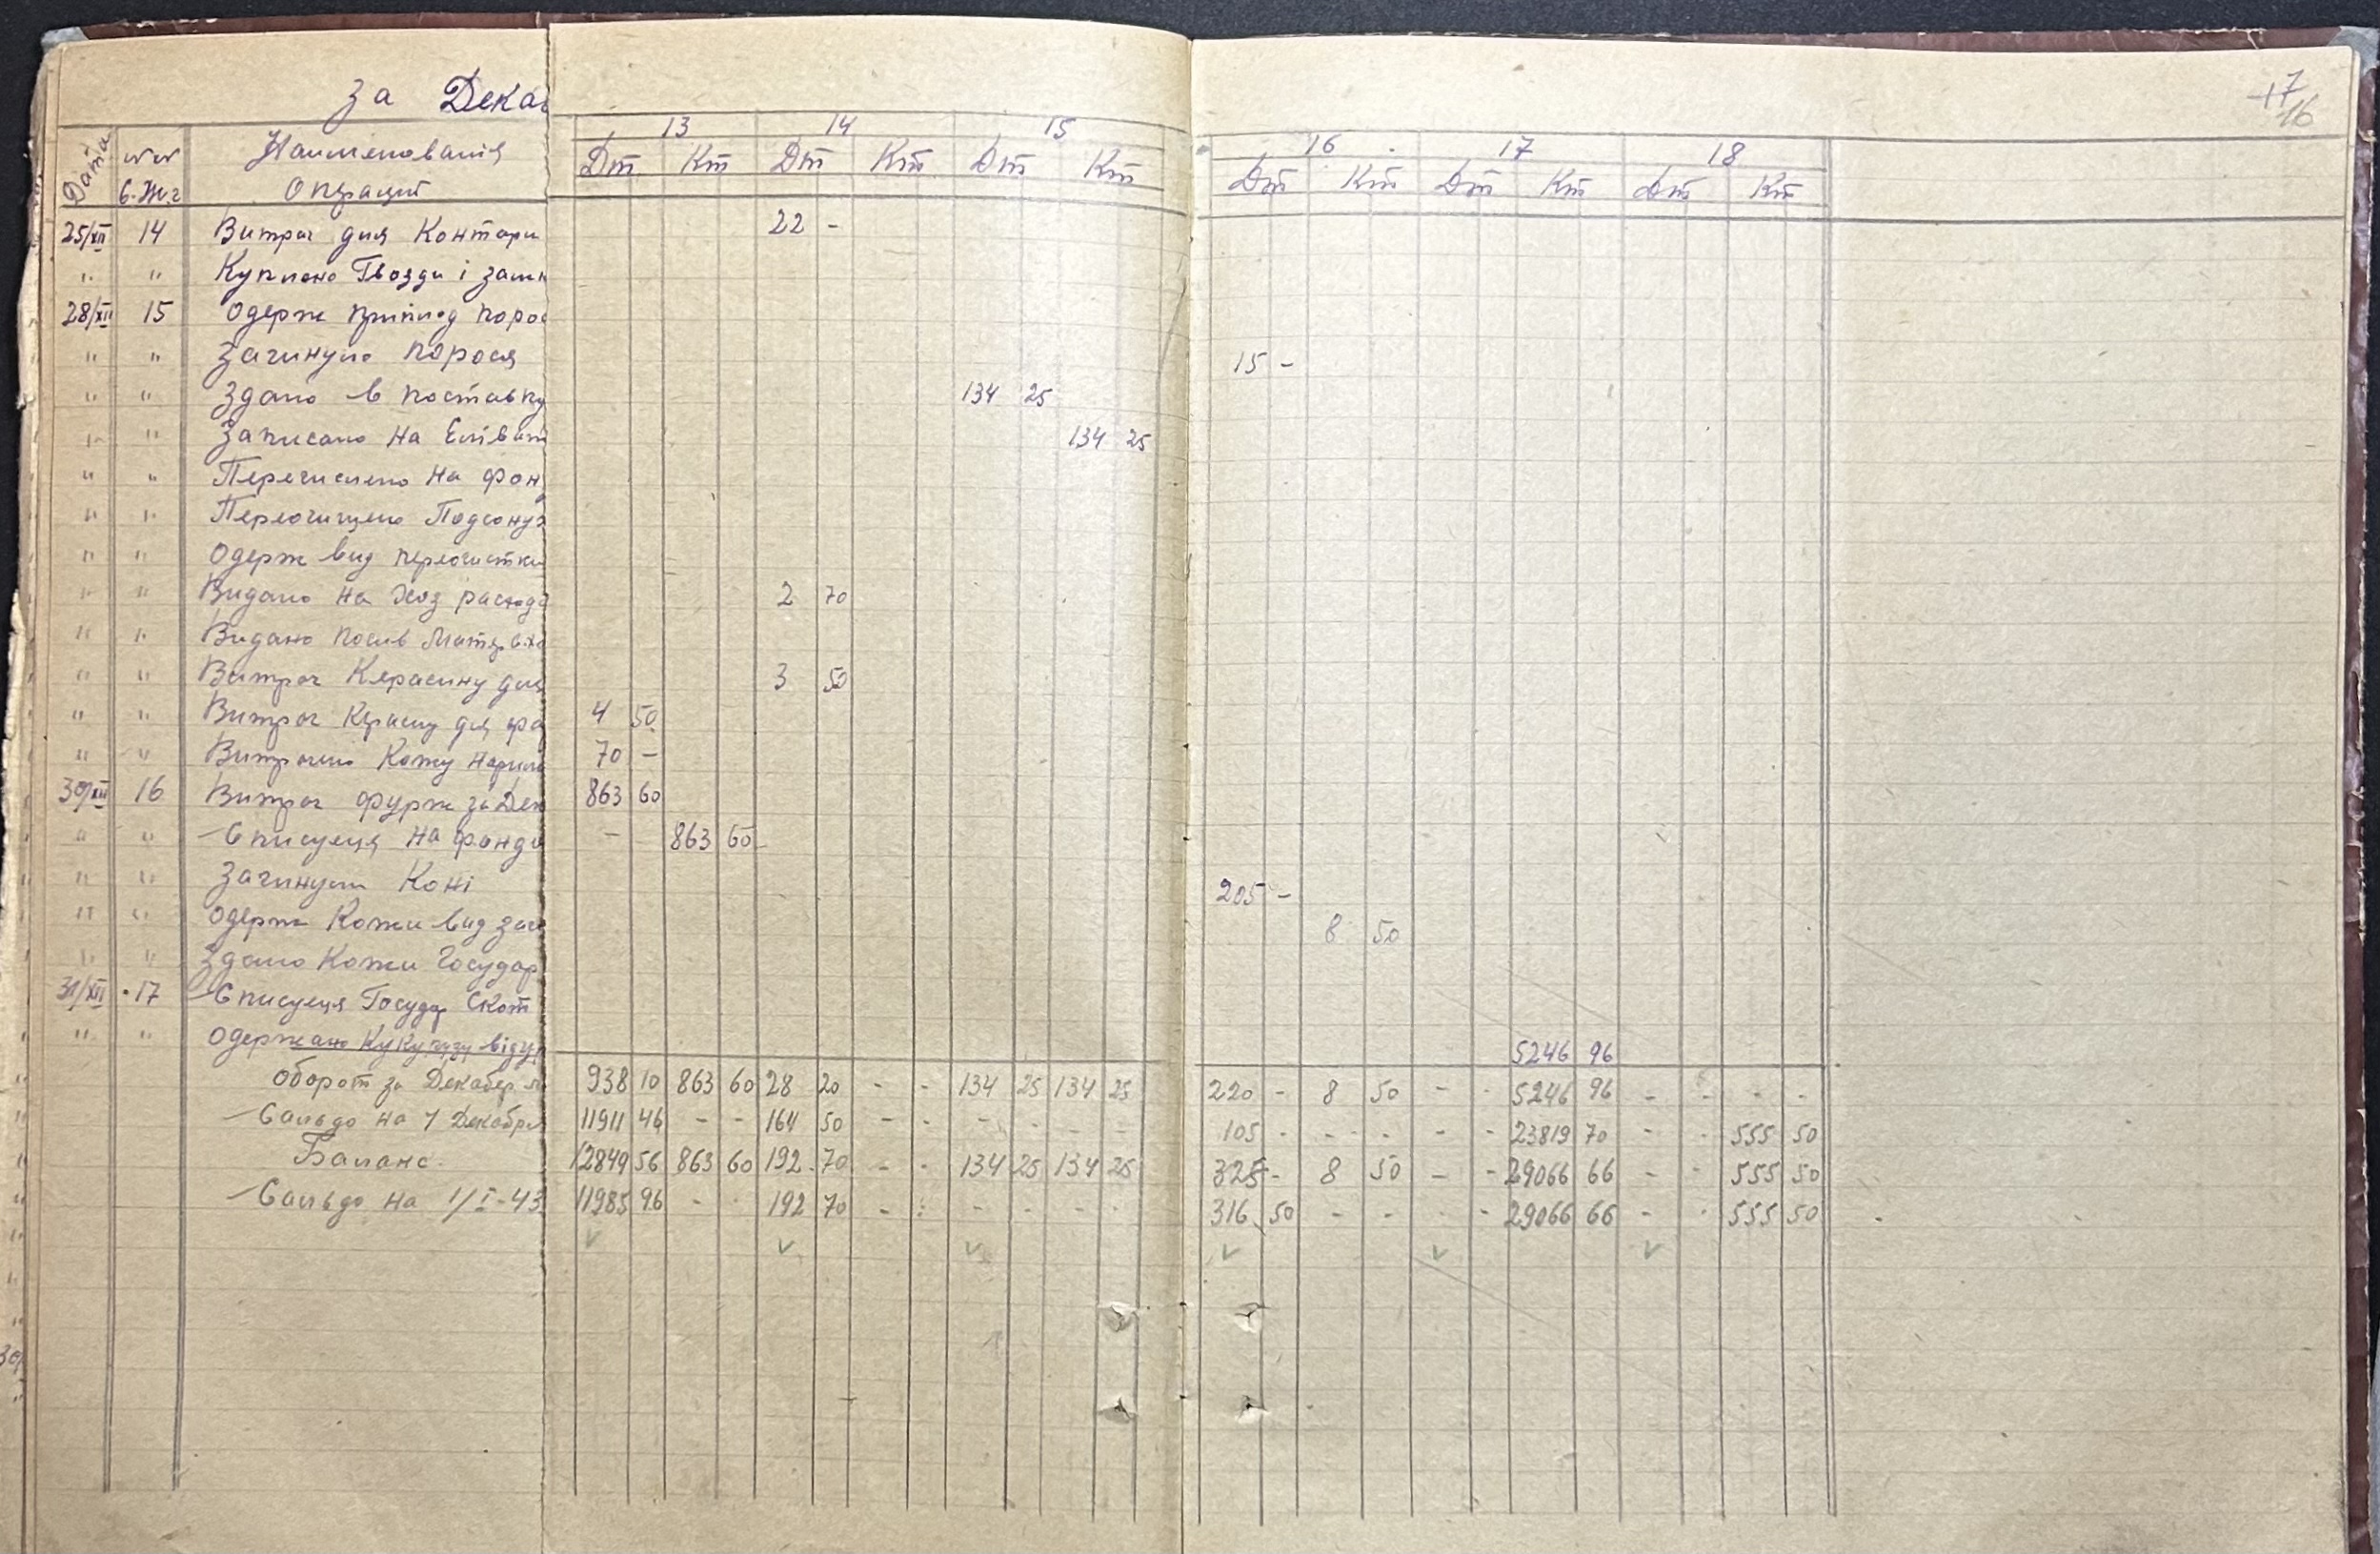 За Дека
17
16
Дата №№ С.Ж.г Наименованія Операций 13 14 15 16 17 18
Дт Кт Дт Кт Дт Кт Дт Кт Дт Кт Дт Кт
25/XII 14 Витрач для Контори 22 -
" " Куплено Гвозди і
28/XII 15 Одерж приплод поро
" " Загинуло порося 15 -
" " Здано в поставку 134 25
" " Записано на 134 25
" " Перечислено на фон
" " Переочищено Подсонух
" " Одерж вид переочистки
" " Видано на Хоз расхода 2 70
" " Видано посив Матер
" " Витрач Керасину для 3 50
" " Витрач Керасину для 4 50
" " Витрачено Кожу 70 -
30/XII 16 Витрач фурж за Дек 863 60
" " Списуеця на фонди - 863 60
" " Загинули Коні 205 -
" " Одерж Кожи вид заг 8 50
" " Здано Кожи Государ
31/XII 17 Списуеця Государ Скот
" " Одержано Кукурузу від 5246 96
Оборот за Декабер 938 10 863 60 28 20 - - 134 25 134 25 220 - 8 50 - - 5246 96 - - - -
Сальдо на 1 Декабря 11911 46 - - 164 50 - - - - - - 105 - - - - - 23819 70 - - 555 50
Баланс. 12849 56 863 60 192 70 - - 134 25 134 25 325 - 8 50 - - 29066 66 - - 555 50
Сальдо на 1/I-43 11985 96 - - 192 70 - - - - - - 316 50 - - - - 29066 66 - - 555 50
30/